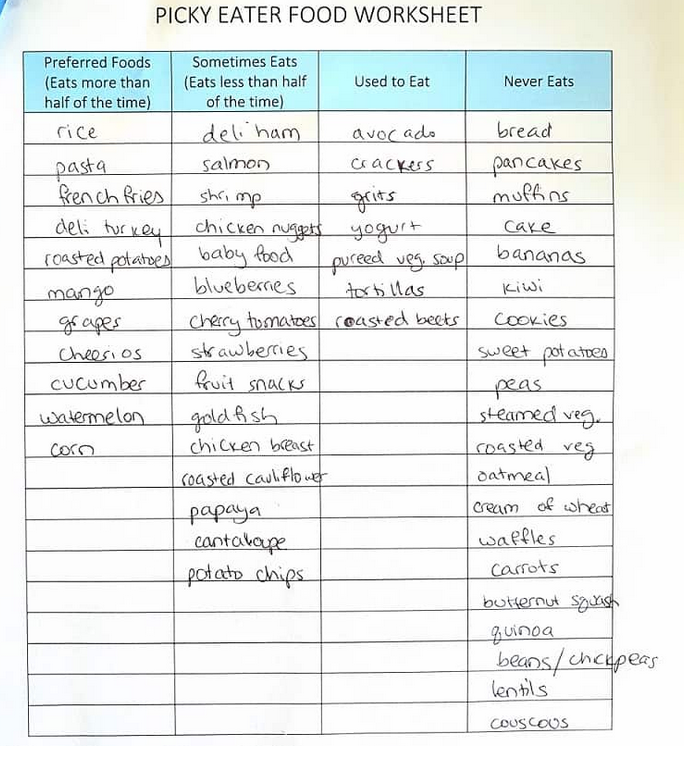 PICKY EATER FOOD WORKSHEET
Preferred Foods (Eats more than half of the time) Sometimes Eats (Eats less than half of the time) Used to Eat Never Eats
rice deli ham avocado bread
pasta salmon crackers pancakes
french fries shrimp grits muffins
deli turkey chicken nuggets yogurt cake
roasted potatoes baby food pureed veg. soup bananas
mango blueberries tortillas kiwi
grapes cherry tomatoes roasted beets cookies
cheerios strawberries sweet potatoes
cucumber fruit snacks peas
watermelon goldfish steamed veg.
corn chicken breast roasted veg
roasted cauliflower oatmeal
papaya cream of wheat
cantaloupe waffles
potato chips carrots
butternut squash
quinoa
beans/chickpeas
lentils
couscous